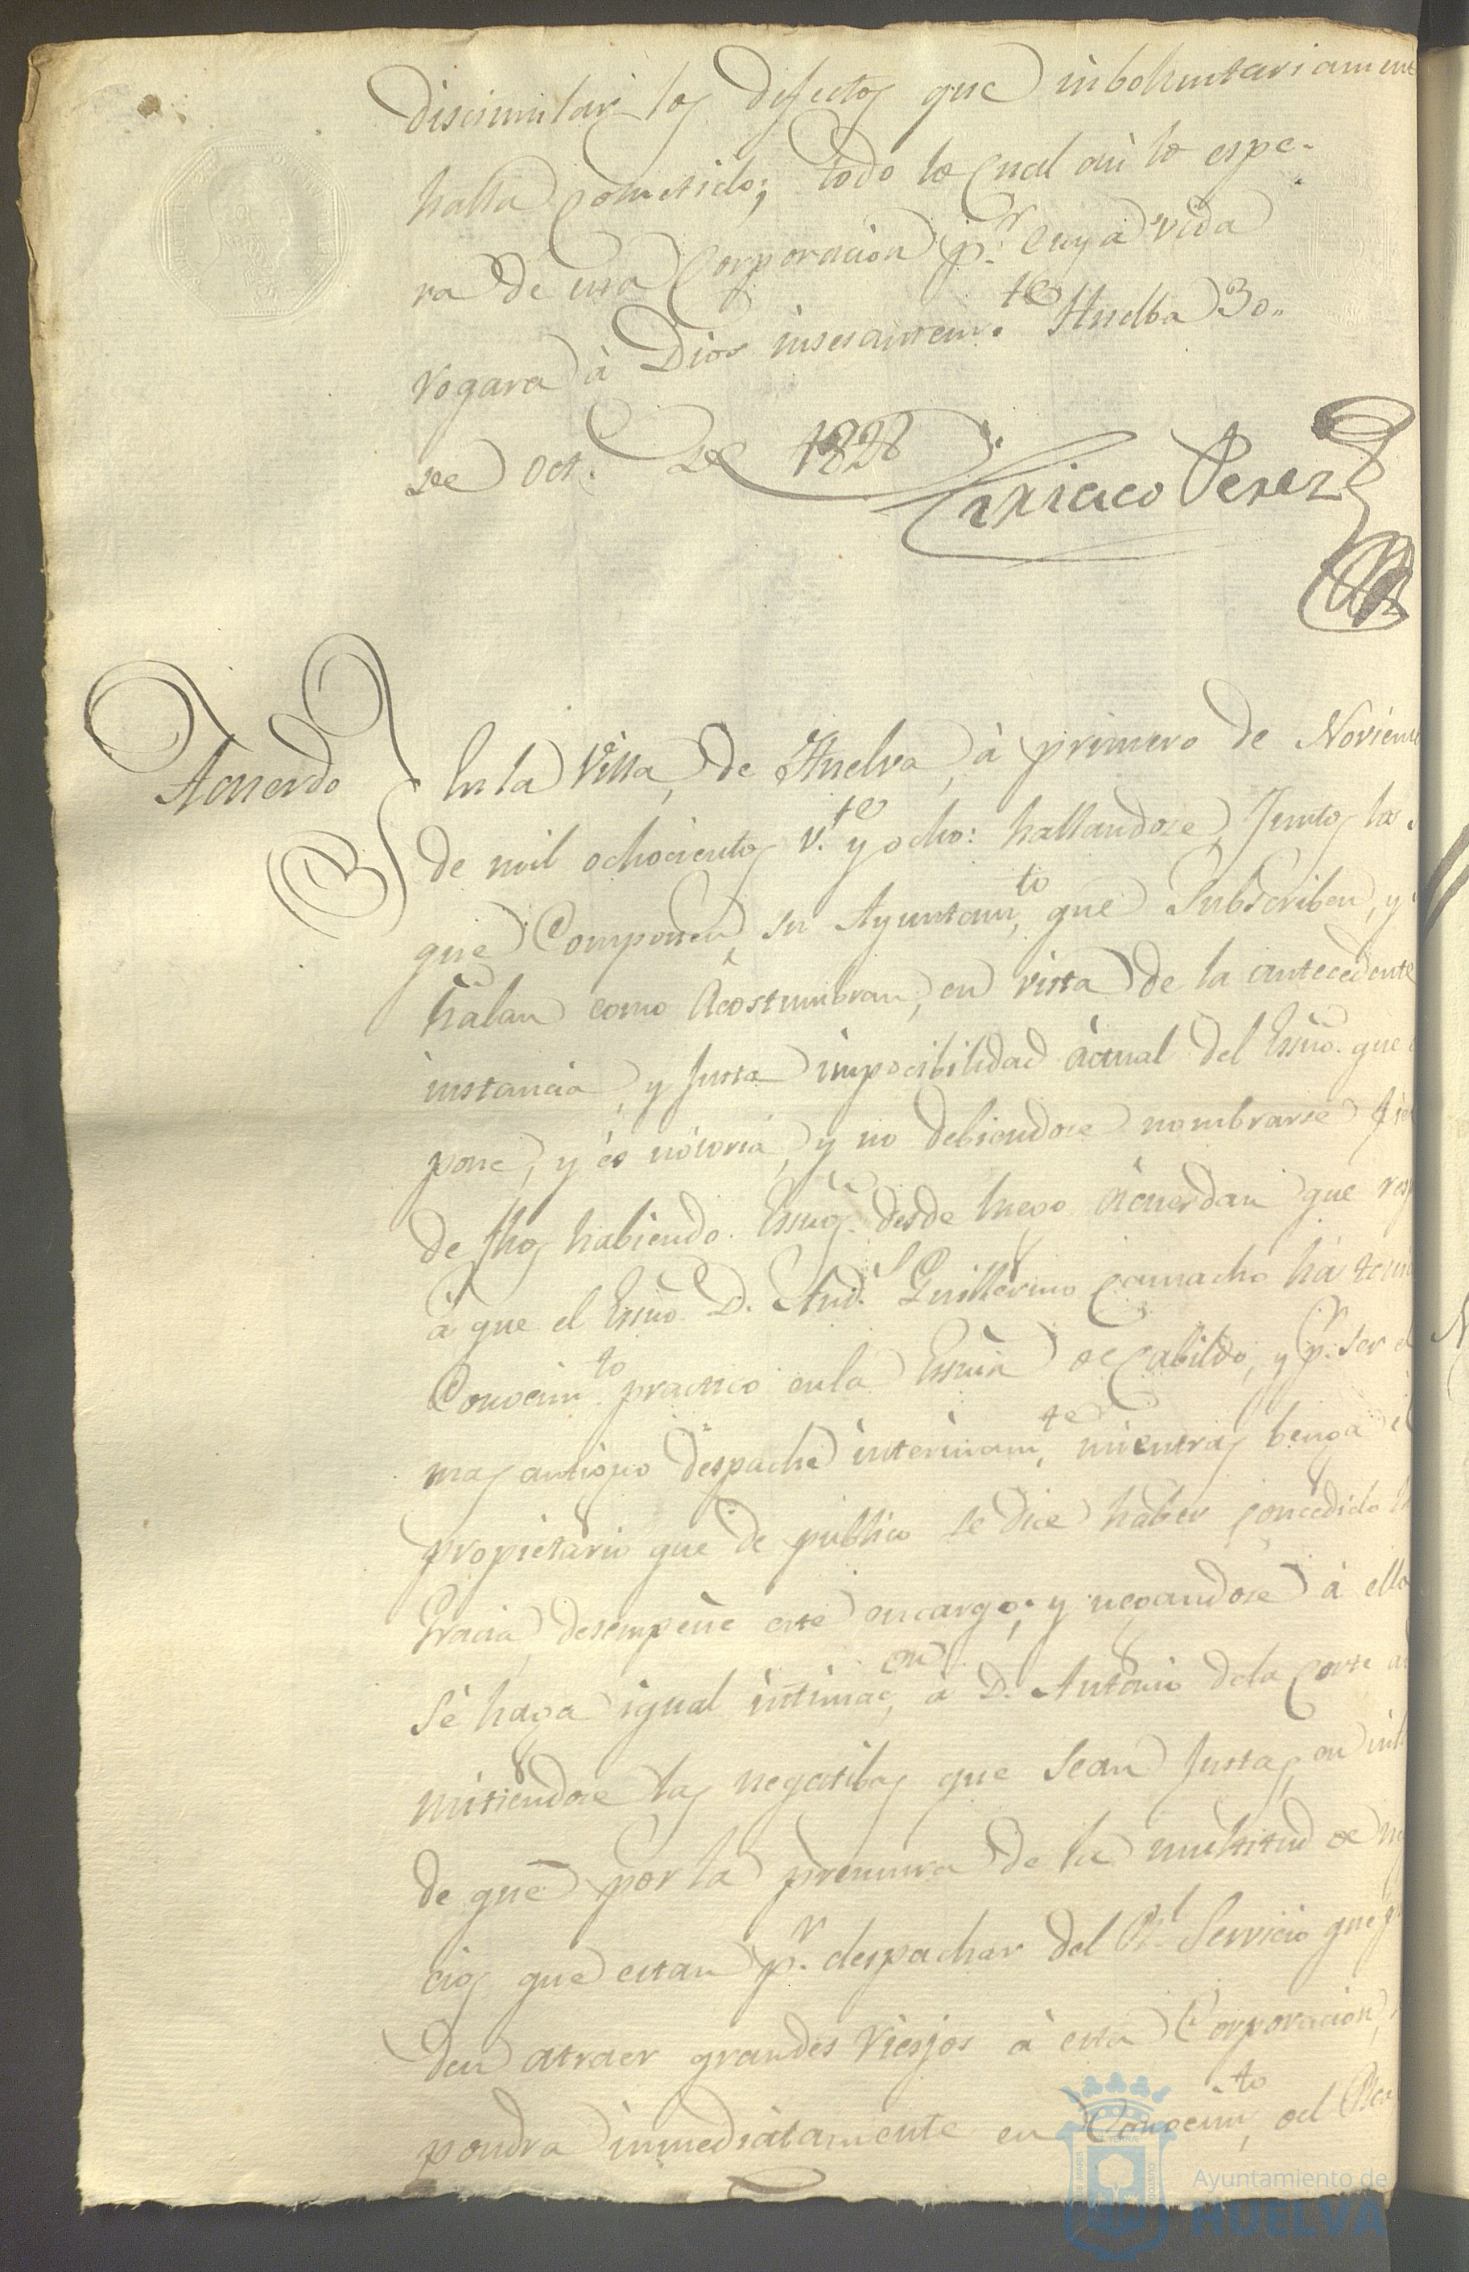 discimular los defectos que inboluntariament
halla cometido; todo lo cual asi lo espe-
ra de esa Corporacion p.r cuya vida
rogara à Dios insesantem.te Huelba 30.,
de Oct. de 1828
Ciriaco Perez
Acuerdo
En la Villa, de Huelva, à primero de Noviem
de mil ochocientos v.te y ocho: hallandose, Juntos los
que Componen, su Ayuntam.to, que Subscriben, y
halan como Acostumbran, en vista de la antecedente
instancia, y Justa impocibilidad àctual del Essno. que
pone, y és nótoria, y no debiendose nombrarse fiel
de fhos habiendo Essnos. desde luego àcuerdan que resp
à que el Essno D. And.s Guillermo Camacho há ten
Conocim.to practico en la Essnía de Cabildo, y p.r ser el
mas antiguo déspache ìnterinam.te, mientras benga el
propietario que de publico se dice haber concedido la
Gracia, desempeñe este encargo; y negandose à ello
Sè haga igual intimac.on, à D. Antonio de la Corte ad
mitiendose las negatibas que sean Justas, en inte
de que por la premura de la multitud de ne
cios que estan p.r despachar del R.l Servicio que p
den atraer grandes riesjos à esta Corporacion,
pondra inmediatamente en Conocim.to, del
Ayuntamiento de
HUELVA